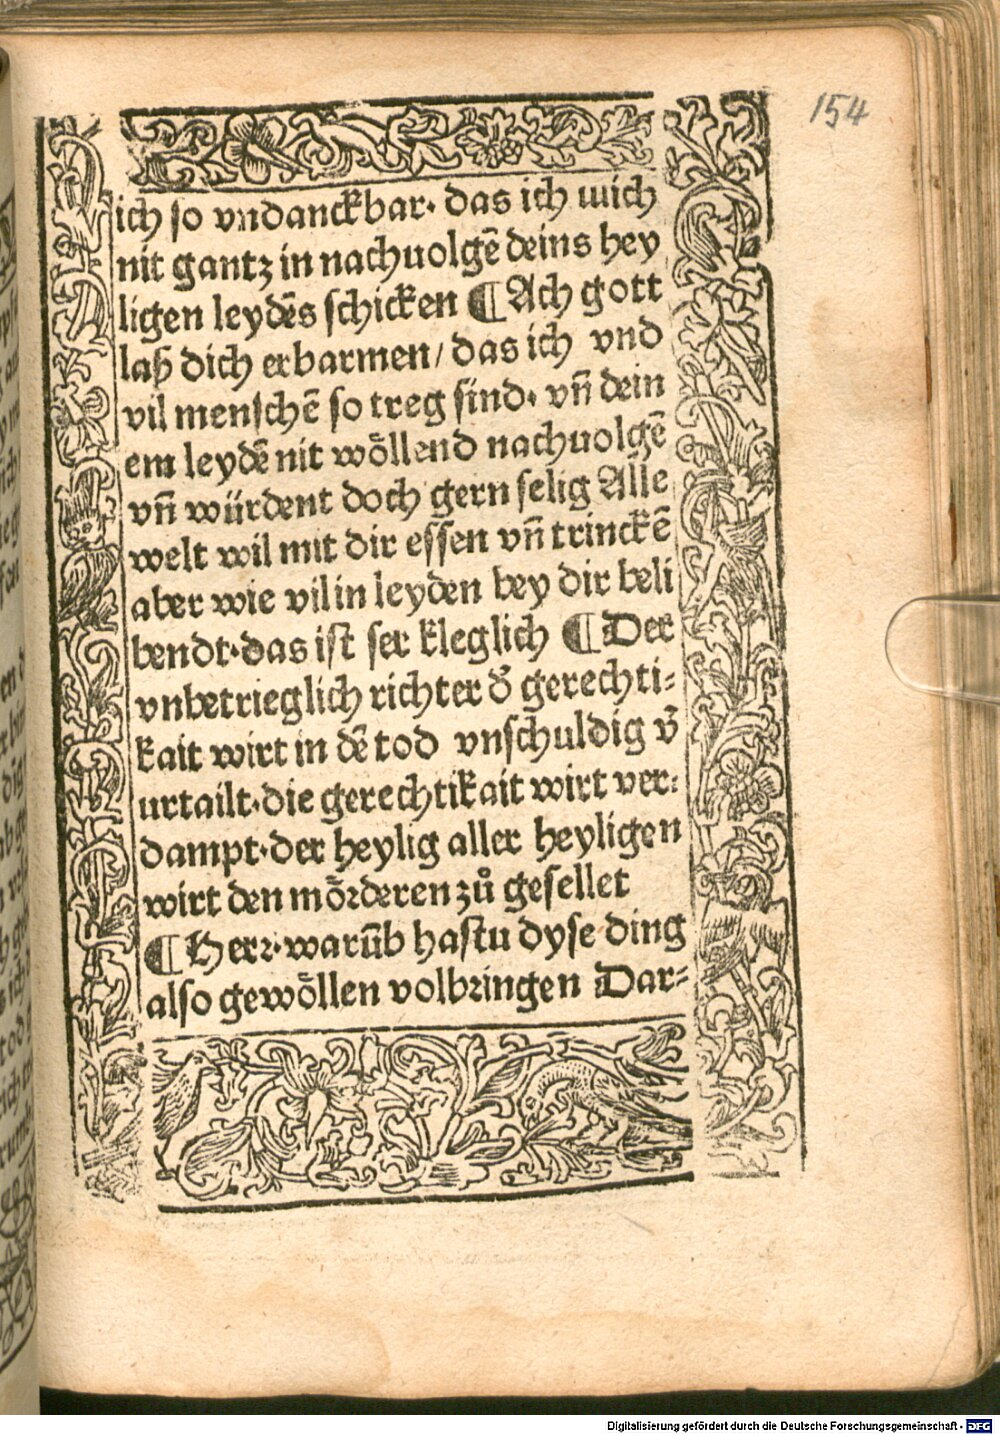 154
ich so vndanckbar. das ich mich
nit gantz in nachuolgē deins hey
ligen leydēs schicken ¶ Ach gott
laß dich erbarmen / das ich vnd
vil menschē so treg sind. vn̄ dein
em leydē nit wöllend nachuolgē
vn̄ würdent doch gern selig Alle
welt wil mit dir essen vn̄ trinckē
aber wie vil in leyden bey dir beli
bendt. das ist ser kleglich ¶ Der
vnbetrieglich richter d̕ gerechti⸗
kait wirt in dē tod vnschuldig v̕
urtailt. die gerechtikait wirt ver⸗
dampt. der heylig aller heyligen
wirt den mörderen zů gesellet
¶ Herr. warūb hastu dyse ding
also gewöllen volbringen Dar⸗
Digitalisierung gefördert durch die Deutsche Forschungsgemeinschaft - DFG